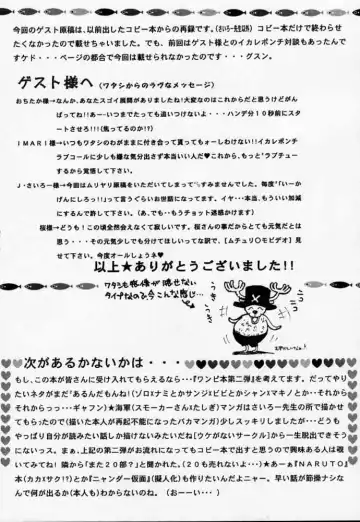 今回のゲスト原稿は、以前出したコピー本からの再録です。コピー本だけで終わらせ
たくなかったので載せちゃいました。でも、前回はゲスト様とのイカレポンチ対談もあったんで
すケド・・・ページの都合で今回は載せられなかったです・・・グスン。
ゲスト様へ (ワタシからのラヴなメッセージ)
おちたか様→なんか、あなたスゴイ展開がありましたね!大変なのはこれからだと思うけどがん
ばってね!!あーいつまでたっても追いつけないよ・・・ハンデ分10秒前にスタ
ートさせろ!!!(焦ってるのか!?)
IMARI様→いつもワタシのわがままに付き合って貰ってもォーしわけない!!イカレポンチ
ラブコールに少しも嫌な気分出さず本当いい人だ♥これから、もっと“ラブチュー
するから覚悟して下さい。
J・さいろー様→今回はムリヤリ原稿をいただいてしまってすみませんでした。毎度“いーか
げんにしろっ!!”って言うぐらいお世話になってます。イヤ・・本当、もういい加減
にするんで許して下さい。(あ、でも・・もうチョット迷惑かけます)
桜様→どうも!この頃全然会えなくて寂しいです。桜さんの事だからとても元気だとは
思う・・・その元気少しでも分けてほしいって な訳で、【ムチュリ〇モビデオ】見
せて下さい。今度オールしょうネ♥
以上★ありがとうございました!!
次があるかないかは・・・
もし、この本が皆さんに受け入れてもらえるなら・・・『ワンピ本第二弾』を考えてます。だってやり
たいネタがまだ“あるんだもんね!(ゾロ×ナミとかサンジ×ビビとかシャン×マキノとか・・・それ
からそれから・・っっ・ギャフン)★海軍(スモーカーさん×たしぎ)マンガはさいろー先生の所で描かせ
てもらったので(描いた本人が再起不能になったバカマンガ)少しスッキリしましたが・・・どう
もやっぱり自分が読みたい話しか描けないみたいだね(ウケがないサークル)から一生脱出できそう
にないっス。まぁ、上記の第二弾がお流れになってもコピー本で出すと思うので興味ある人は覗
いてみてね!隣から「また20部?」と聞かれた。(20も売れないよ・・・)★あーぁ『NARUTO』
本(カカ×サク!?)と『ニャンダー仮面』(擬人化)も作りたいんだよニャー。早い話が節操ナシ
なんで何が出るか(本人も)わからないのね。(おーーい・・・)